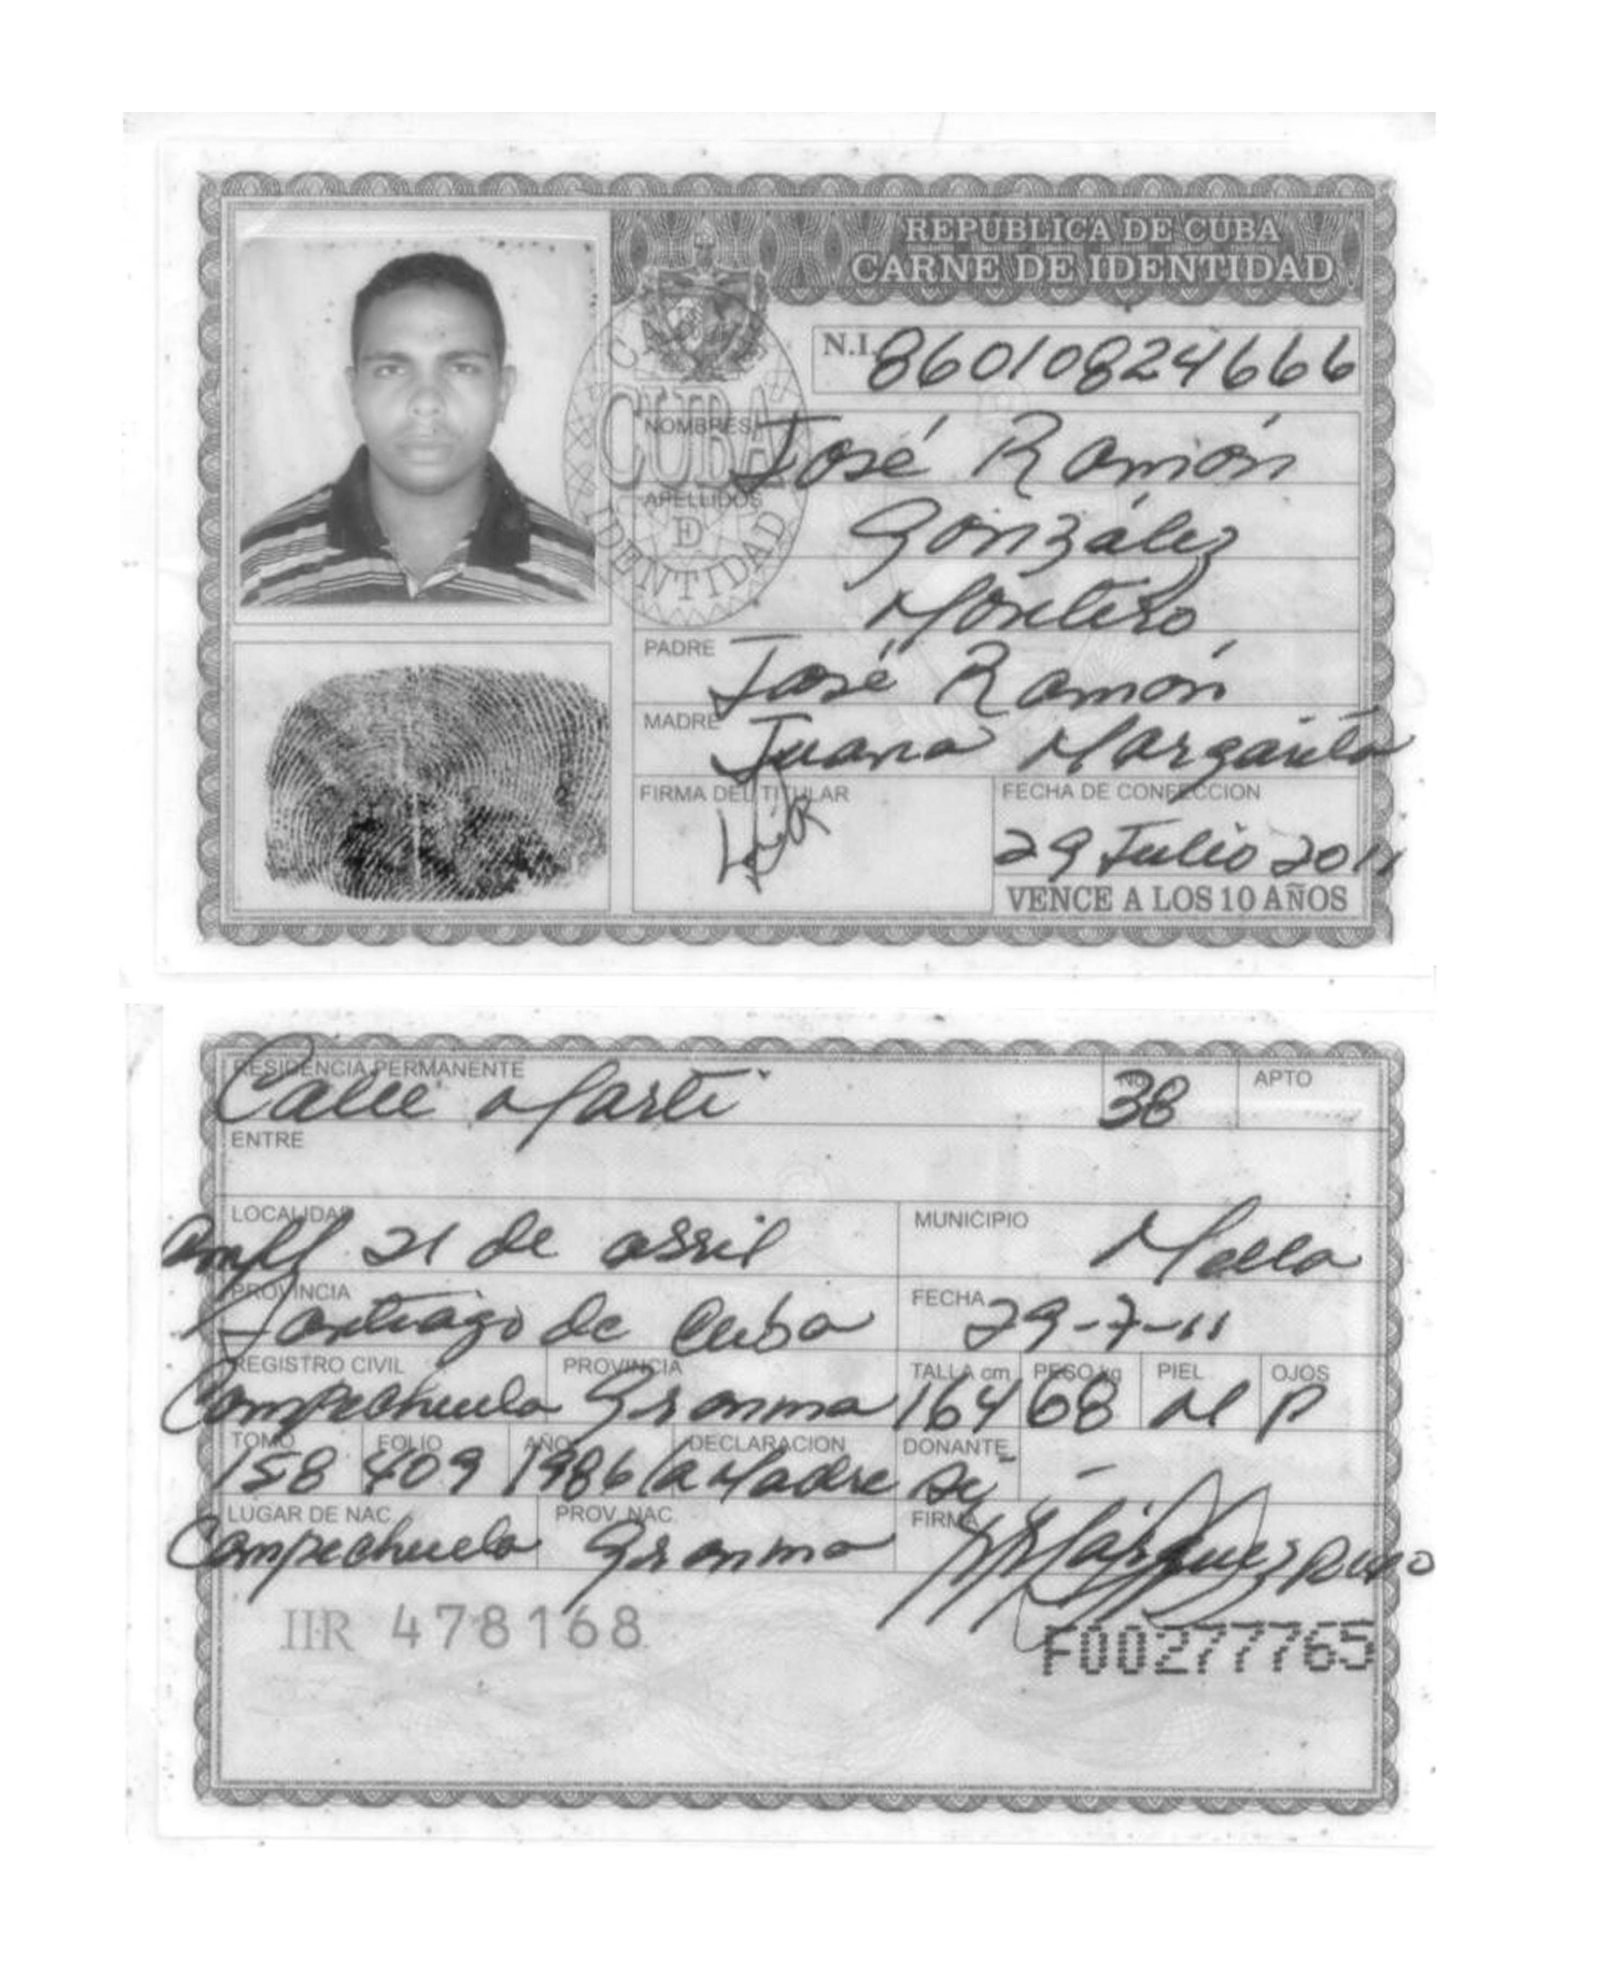 REPÚBLICA DE CUBA
CARNE DE IDENTIDAD
N.I. 86010824666
CUBA
NOMBRES José Ramón
APELLIDOS González
DE
IDENTIDAD
Montero
PADRE José Ramón
MADRE Juana Margarita
FIRMA DEL TITULAR
FECHA DE CONFECCION
29 Julio 2011
VENCE A LOS 10 AÑOS
RESIDENCIA PERMANENTE No. APTO
Calle Martí 38
ENTRE
LOCALIDAD MUNICIPIO
21 de abril Mella
PROVINCIA FECHA
Santiago de Cuba 29-7-11
REGISTRO CIVIL PROVINCIA TALLA cm PESO kg PIEL OJOS
Campechuela Granma 164 68 M P
TOMO FOLIO AÑO DECLARACION DONANTE
158 409 1986 la Madre Si -
LUGAR DE NAC. PROV. NAC. FIRMA
Campechuela Granma
IIR 478168
F00277765